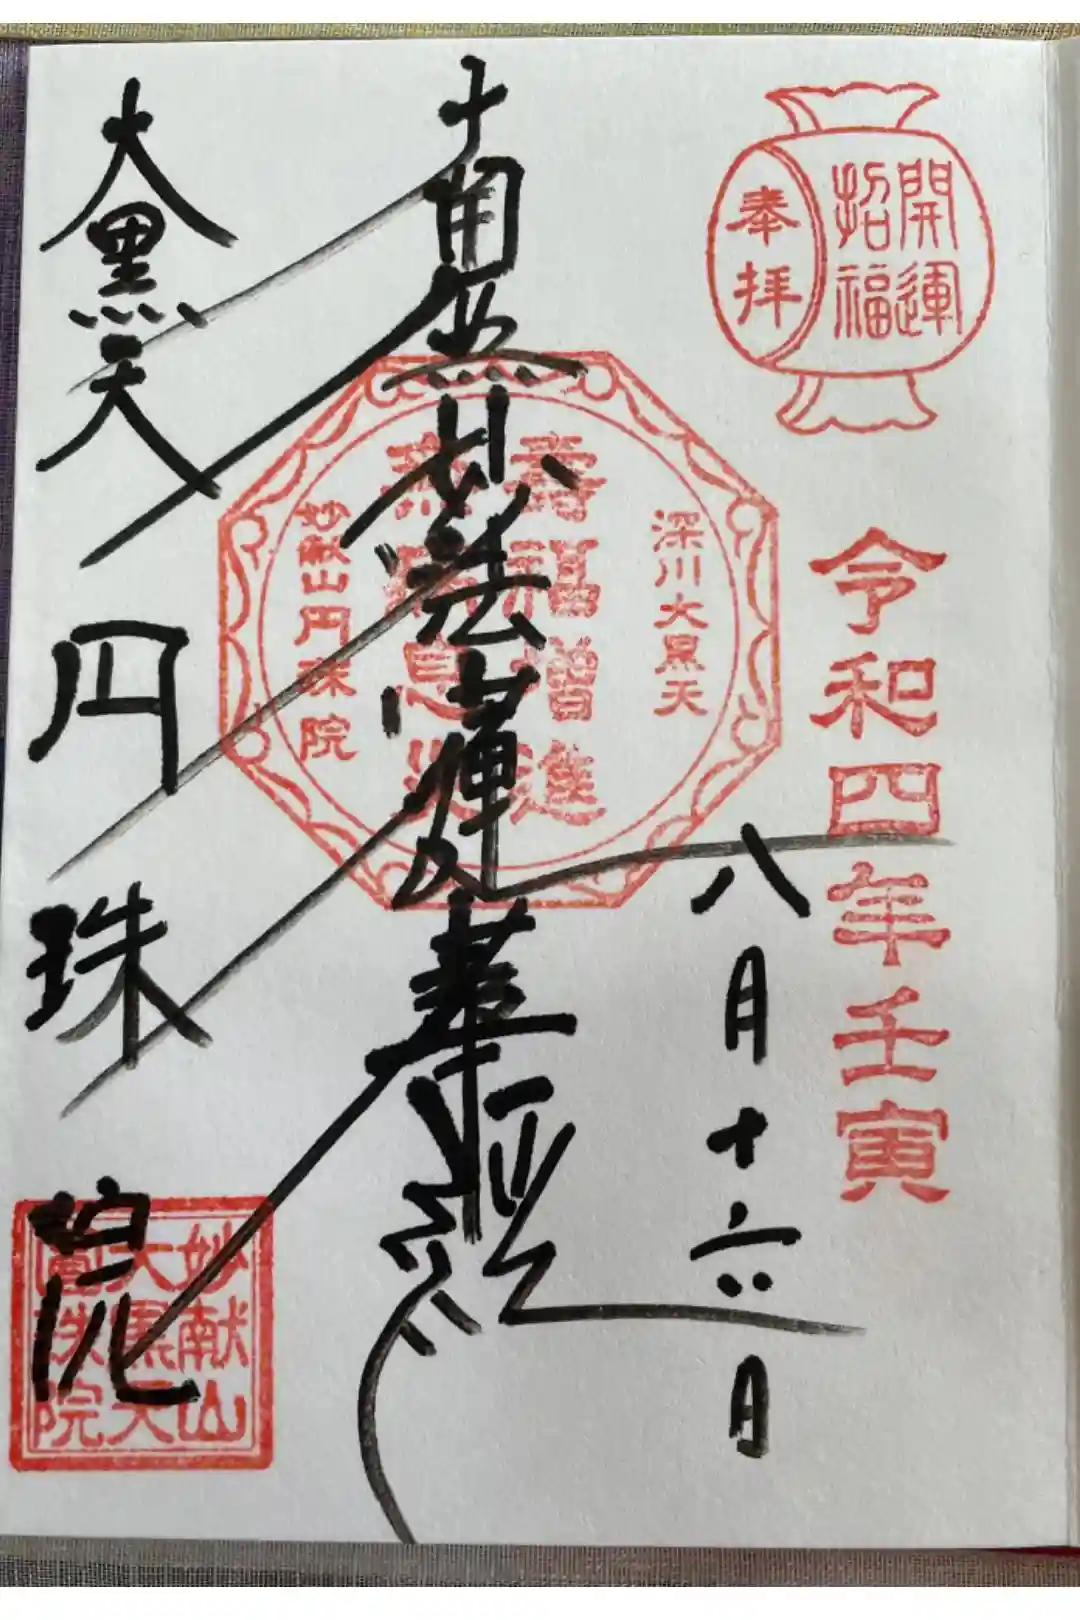 開運
招福
奉拝
令和四年壬寅
八月十六日
南無妙法蓮華経
深川大黒天
壽福増進
無病息災
妙献山円珠院
大黒天
円珠院
妙献山
大黒天
圓珠院